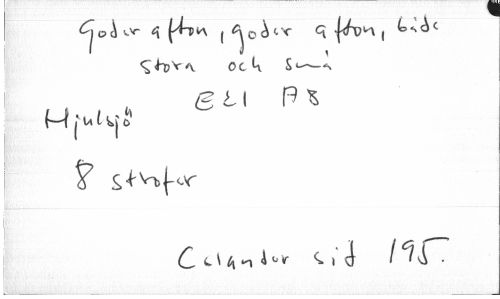 Goder afton, goder afton, både
stora och små
EEI A8
Hjulsjö
8 strofer
Celander sid 195.